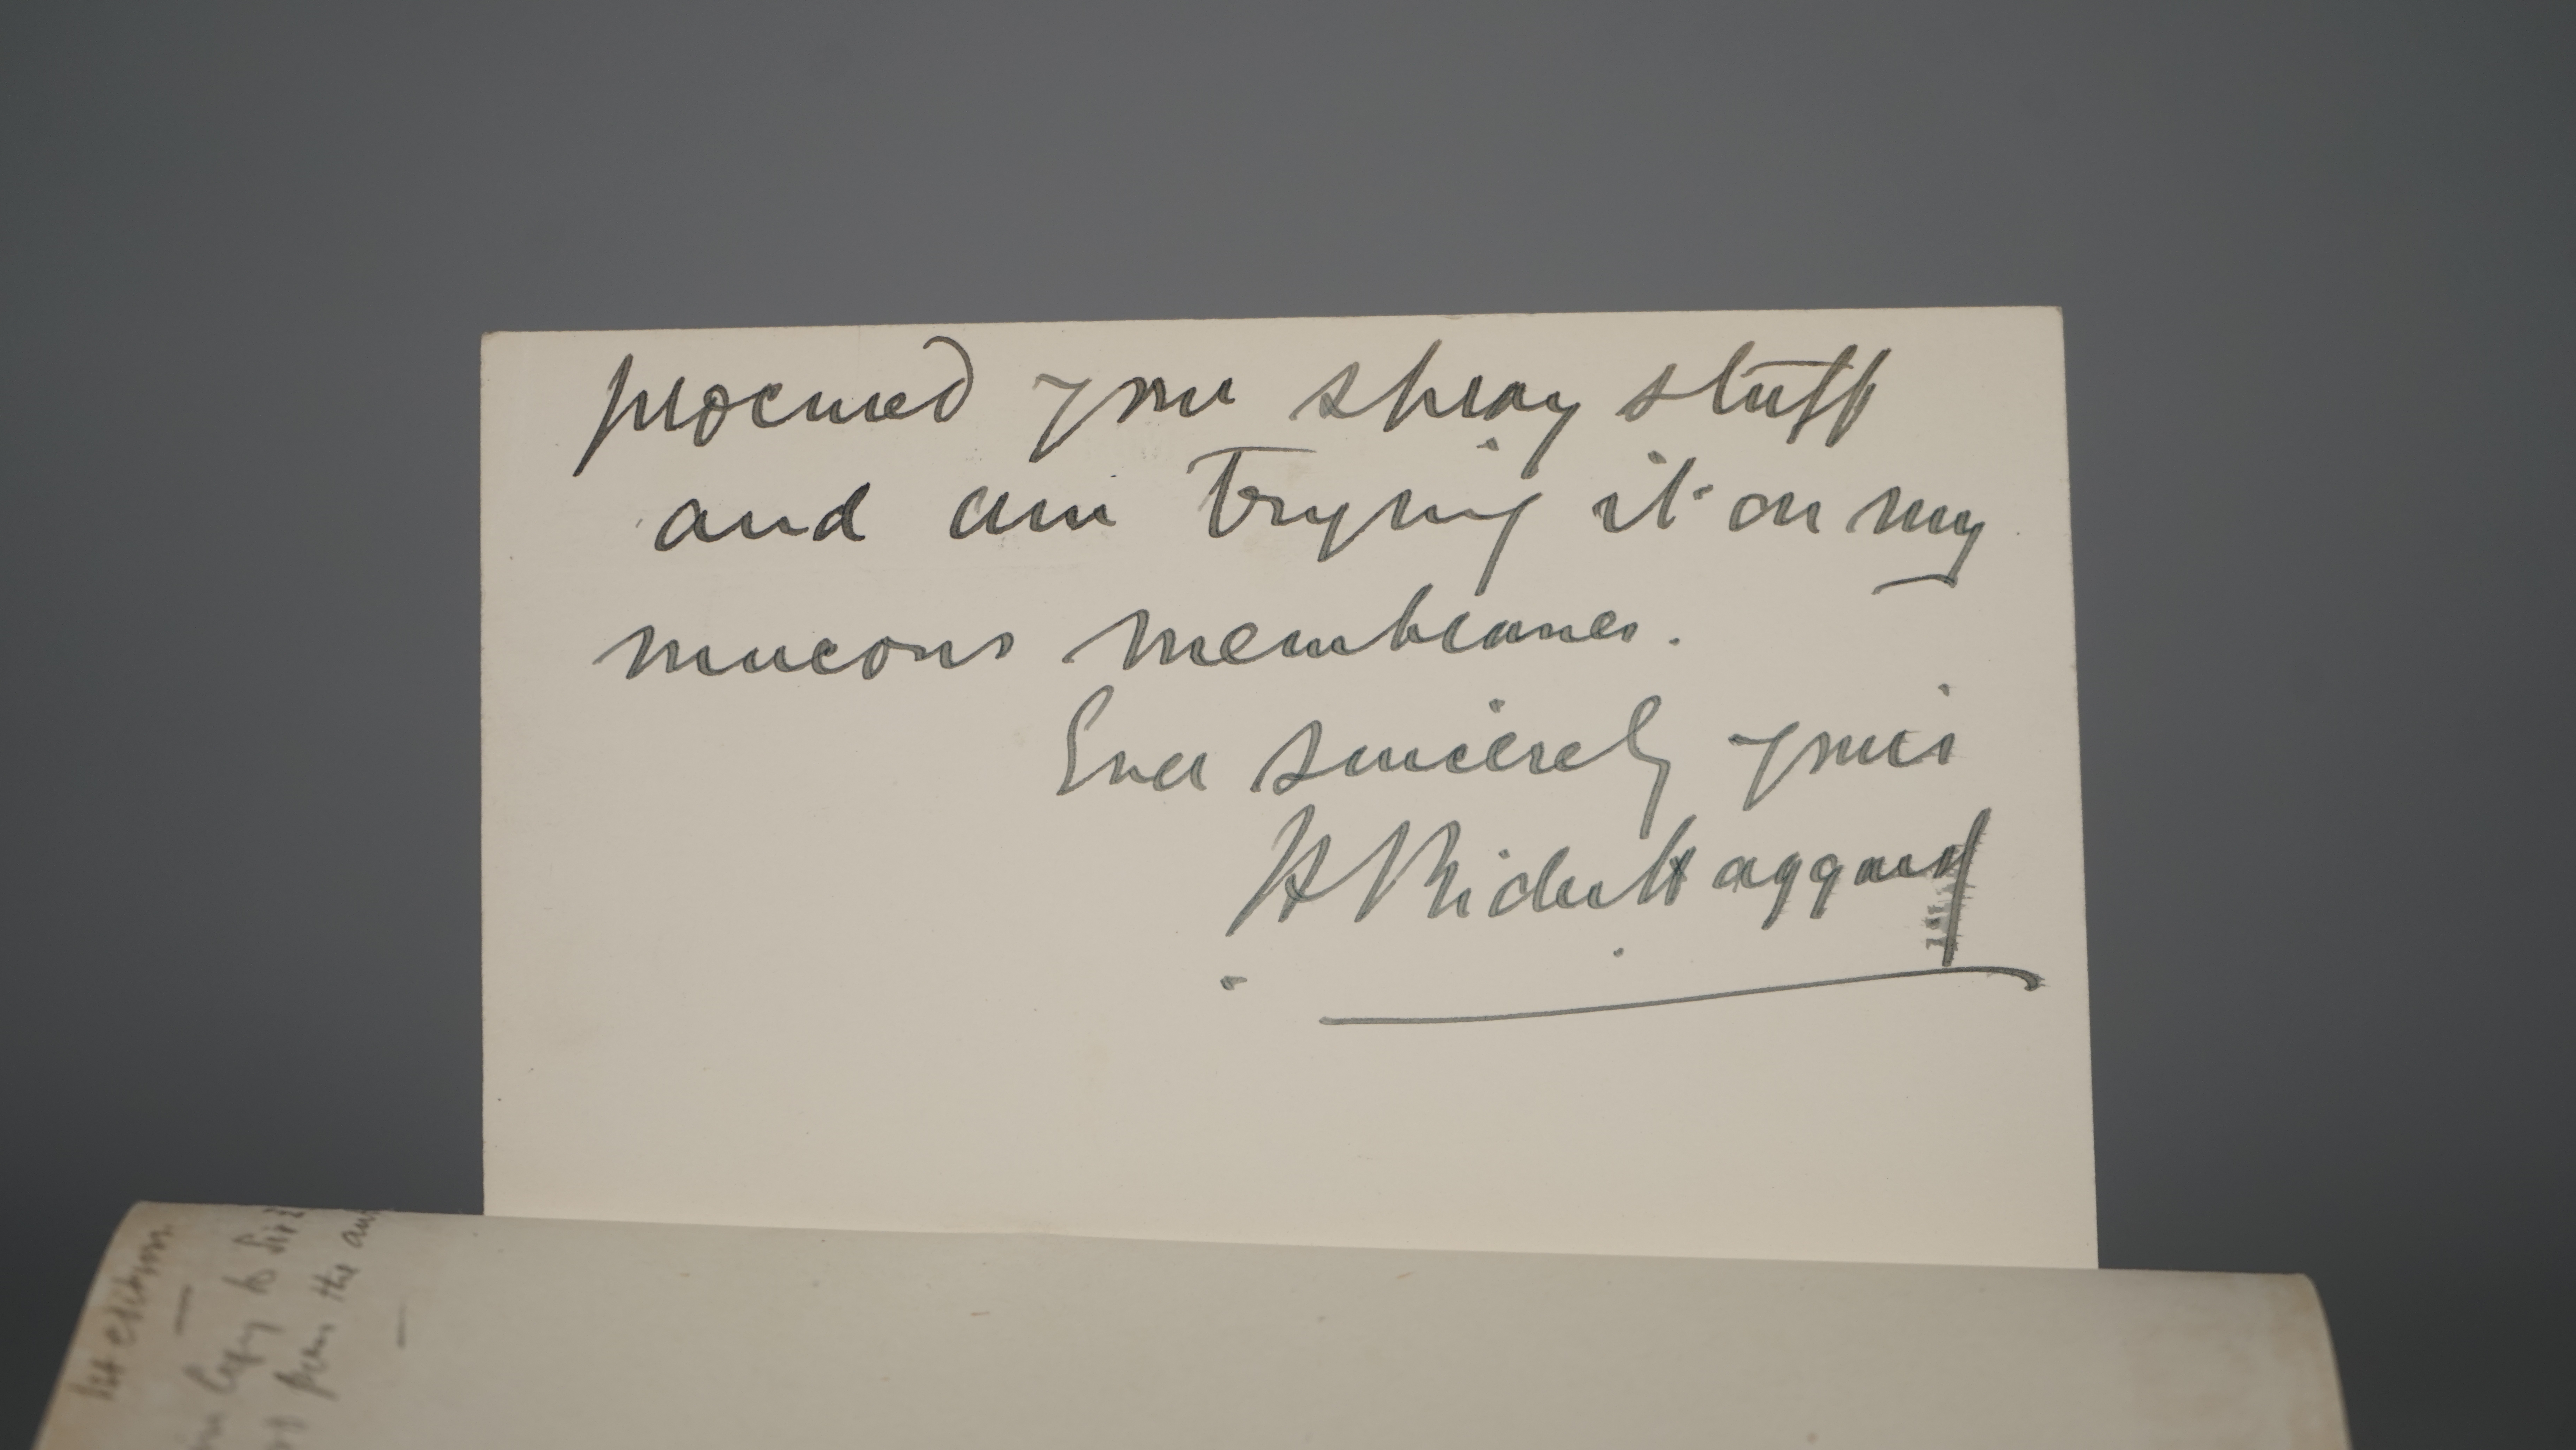 procured your spray stuff
and am trying it on my
mucous membranes.
Ever sincerely yours
H Rider Haggard
1st edition
copy to Sir
from the